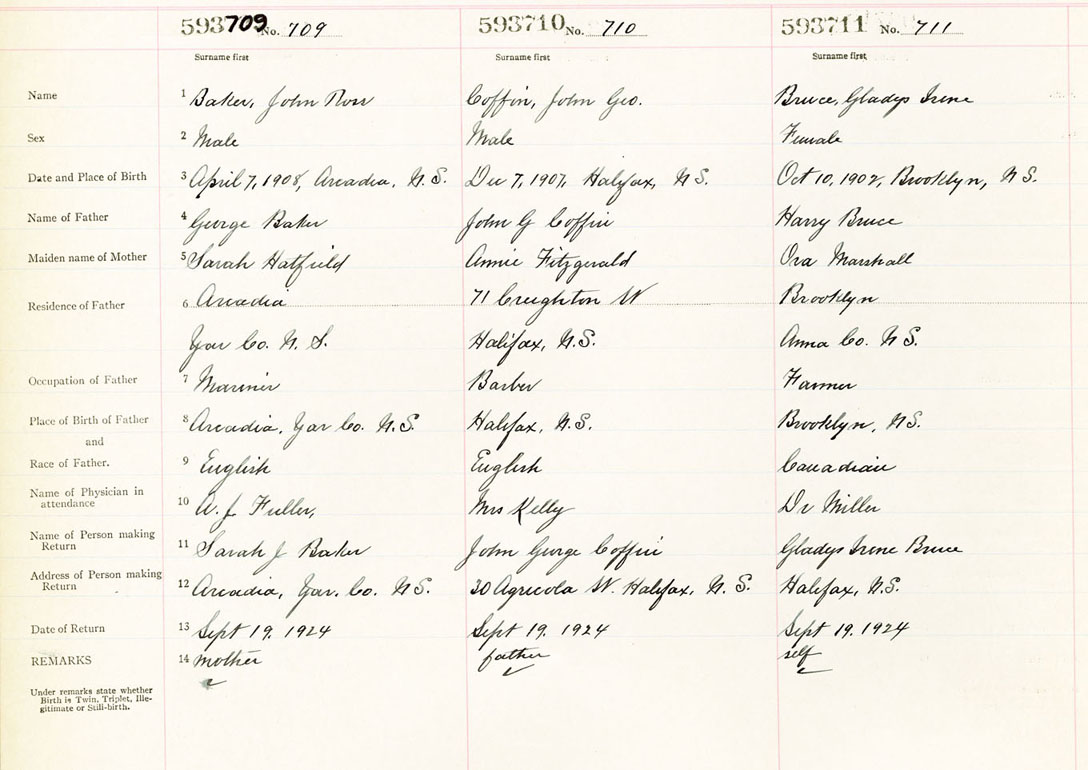 593709 No. 709 593710 No. 710 593711 No. 711
Surname first Surname first Surname first
Name 1 Baker, John Ross Coffin, John Geo. Bruce, Gladys Irene
Sex 2 Male Male Female
Date and Place of Birth 3 April 7, 1908, Arcadia, N.S. Dec 7, 1907, Halifax, N.S. Oct 10, 1902, Brooklyn, N.S.
Name of Father 4 George Baker John G Coffin Harry Bruce
Maiden name of Mother 5 Sarah Hatfield Annie Fitzgerald Ora Marshall
Residence of Father 6 Arcadia 71 Creighton St Brooklyn
Yar Co. N.S. Halifax, N.S. Anna Co. N.S.
Occupation of Father 7 Mariner Barber Farmer
Place of Birth of Father 8 Arcadia, Yar Co. N.S. Halifax, N.S. Brooklyn, N.S.
and
Race of Father. 9 English English Canadian
Name of Physician in
attendance 10 A. J. Fuller, Mrs Kelly Dr Miller
Name of Person making
Return 11 Sarah J Baker John George Coffin Gladys Irene Bruce
Address of Person making
Return 12 Arcadia, Yar. Co. N.S. 30 Agricola St. Halifax, N.S. Halifax, N.S.
Date of Return 13 Sept 19. 1924 Sept 19. 1924 Sept 19. 1924
REMARKS 14 mother father self
Under remarks state whether
Birth is Twin, Triplet, Ille-
gitimate or Still-birth.